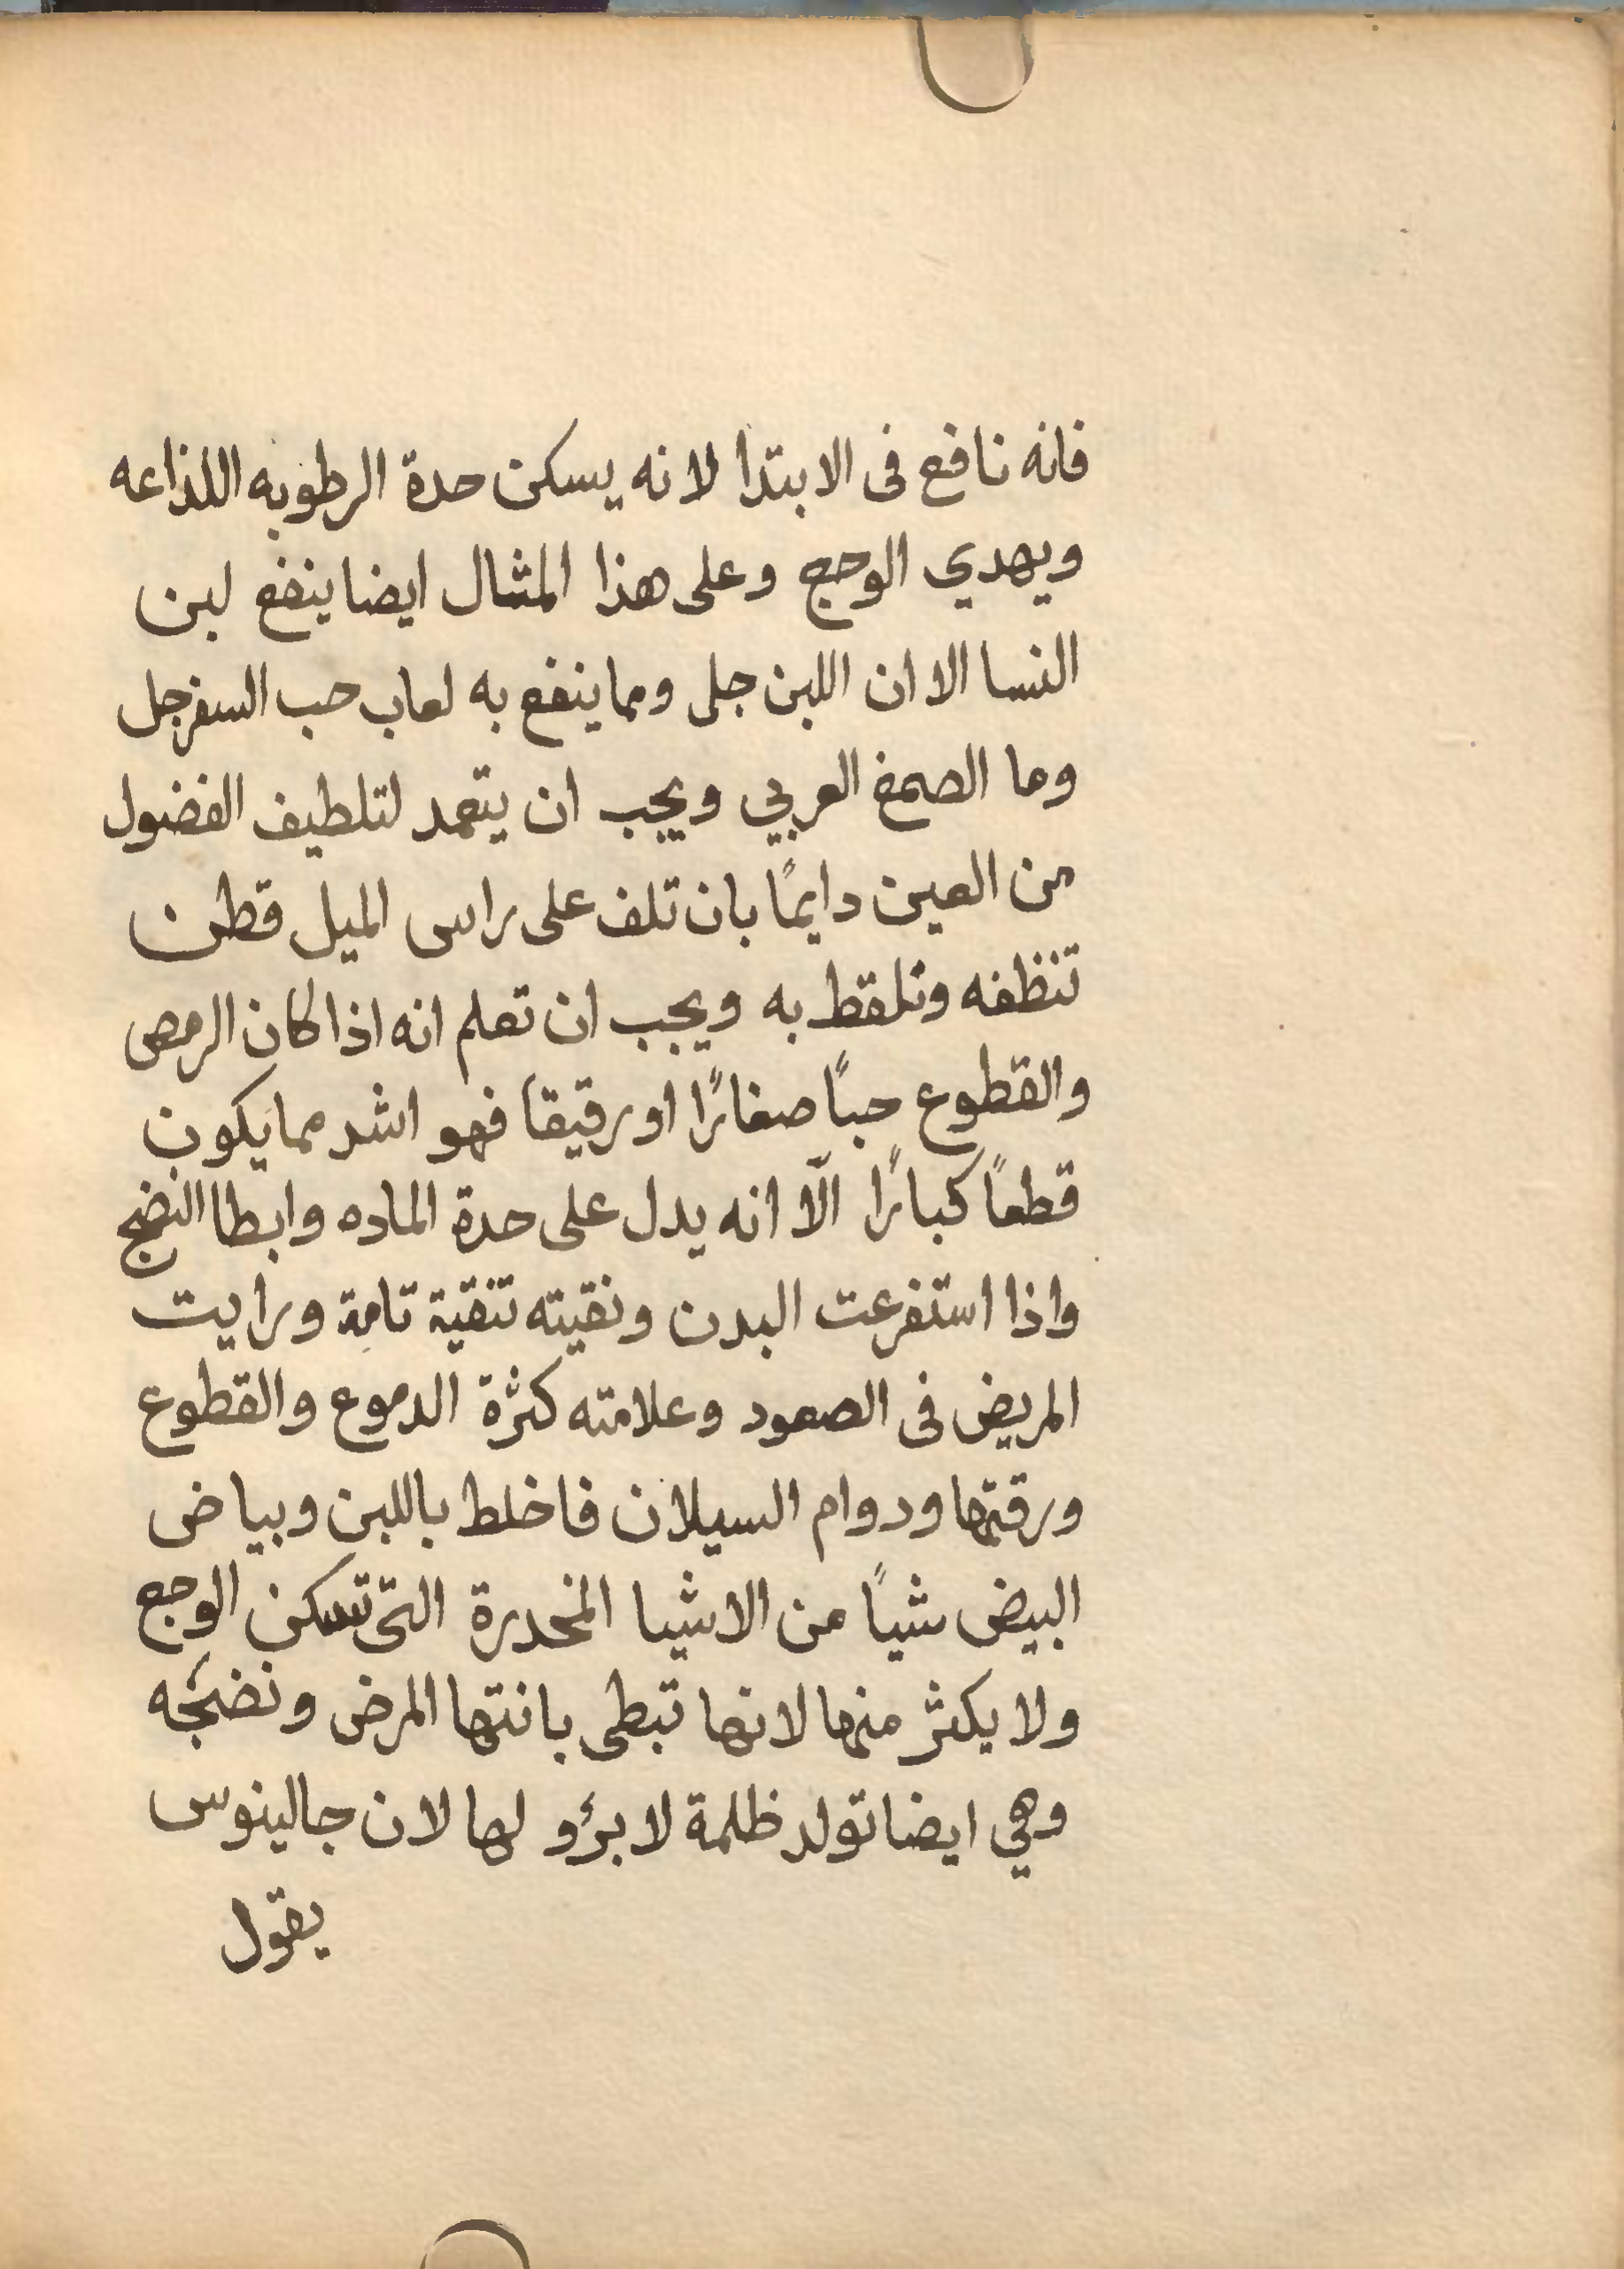 فانه نافع فى الابتدا لانه يسكن حدة الرطوبه اللذاعه
ويهدي الوجع وعلى هذا المثال ايضا ينفع لبن
النسا الا ان اللبن جلى ومما ينفع به لعاب حب السفرجل
وما الصمغ العربي ويجب ان يتعمد لتلطيف الفضول
من العين دايمًا بان تلف على راس الميل قطن
تنظفه وتلقط به ويجب ان تعلم انه اذا كان الرمص
والقطوع حبًا صغارًا او رقيقا فهو اشد مما يكون
قطعًا كبارًا الّا انه يدل على حدة الماده وابطا النضج
واذا استفرعت البدن ونقيته تنقية تامة ورايت
المريض فى الصعود وعلامته كثرة الدموع والقطوع
ورقتها ودوام السيلان فاخلط باللبن وبياض
البيض شيًا من الاشيا المخدرة التى تسكن الوجع
ولا يكثر منها لانها تبطى بانتها المرض ونضجه
وهي ايضا تولد ظلمة لا برؤ لها لان جالينوس
يقول